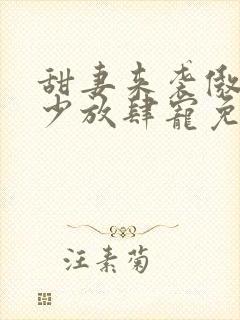 甜妻来袭傲
少放肆宠免
汪素菊